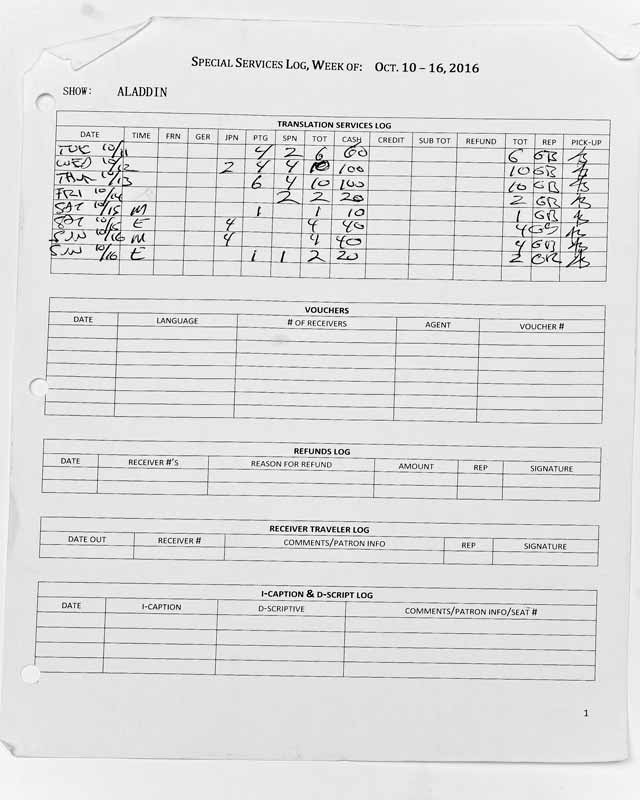 SPECIAL SERVICES LOG, WEEK OF: OCT. 10 – 16, 2016
SHOW: ALADDIN
TRANSLATION SERVICES LOG
DATE TIME FRN GER JPN PTG SPN TOT CASH CREDIT SUB TOT REFUND TOT REP PICK-UP
TUE 10/11 4 2 6 60 6 GB
WED 10/12 2 4 4 10 100 10 GB
THUR 10/13 6 4 10 100 10 GB
FRI 10/14 2 2 20 2 GB
SAT 10/15 M 1 1 10 1 GB
SAT 10/15 E 4 4 40 4
SUN 10/16 M 4 4 40 4 GB
SUN 10/16 E 1 1 2 20 2 GB
VOUCHERS
DATE LANGUAGE # OF RECEIVERS AGENT VOUCHER #
REFUNDS LOG
DATE RECEIVER #'S REASON FOR REFUND AMOUNT REP SIGNATURE
RECEIVER TRAVELER LOG
DATE OUT RECEIVER # COMMENTS/PATRON INFO REP SIGNATURE
I-CAPTION & D-SCRIPT LOG
DATE I-CAPTION D-SCRIPTIVE COMMENTS/PATRON INFO/SEAT #
1